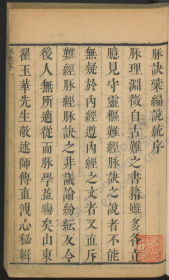 脉訣彙編說統序
脉理淵微自古難之書籍雖多各立
臆見守靈樞難經脉訣之說者不能
無疑於內經遵內經之文者又直斥
難經脉經脉訣之非議論紛紜友令
後人無所適從而脉學益晦矣山東
翟玉華先生敬述師傳直洩心秘輯